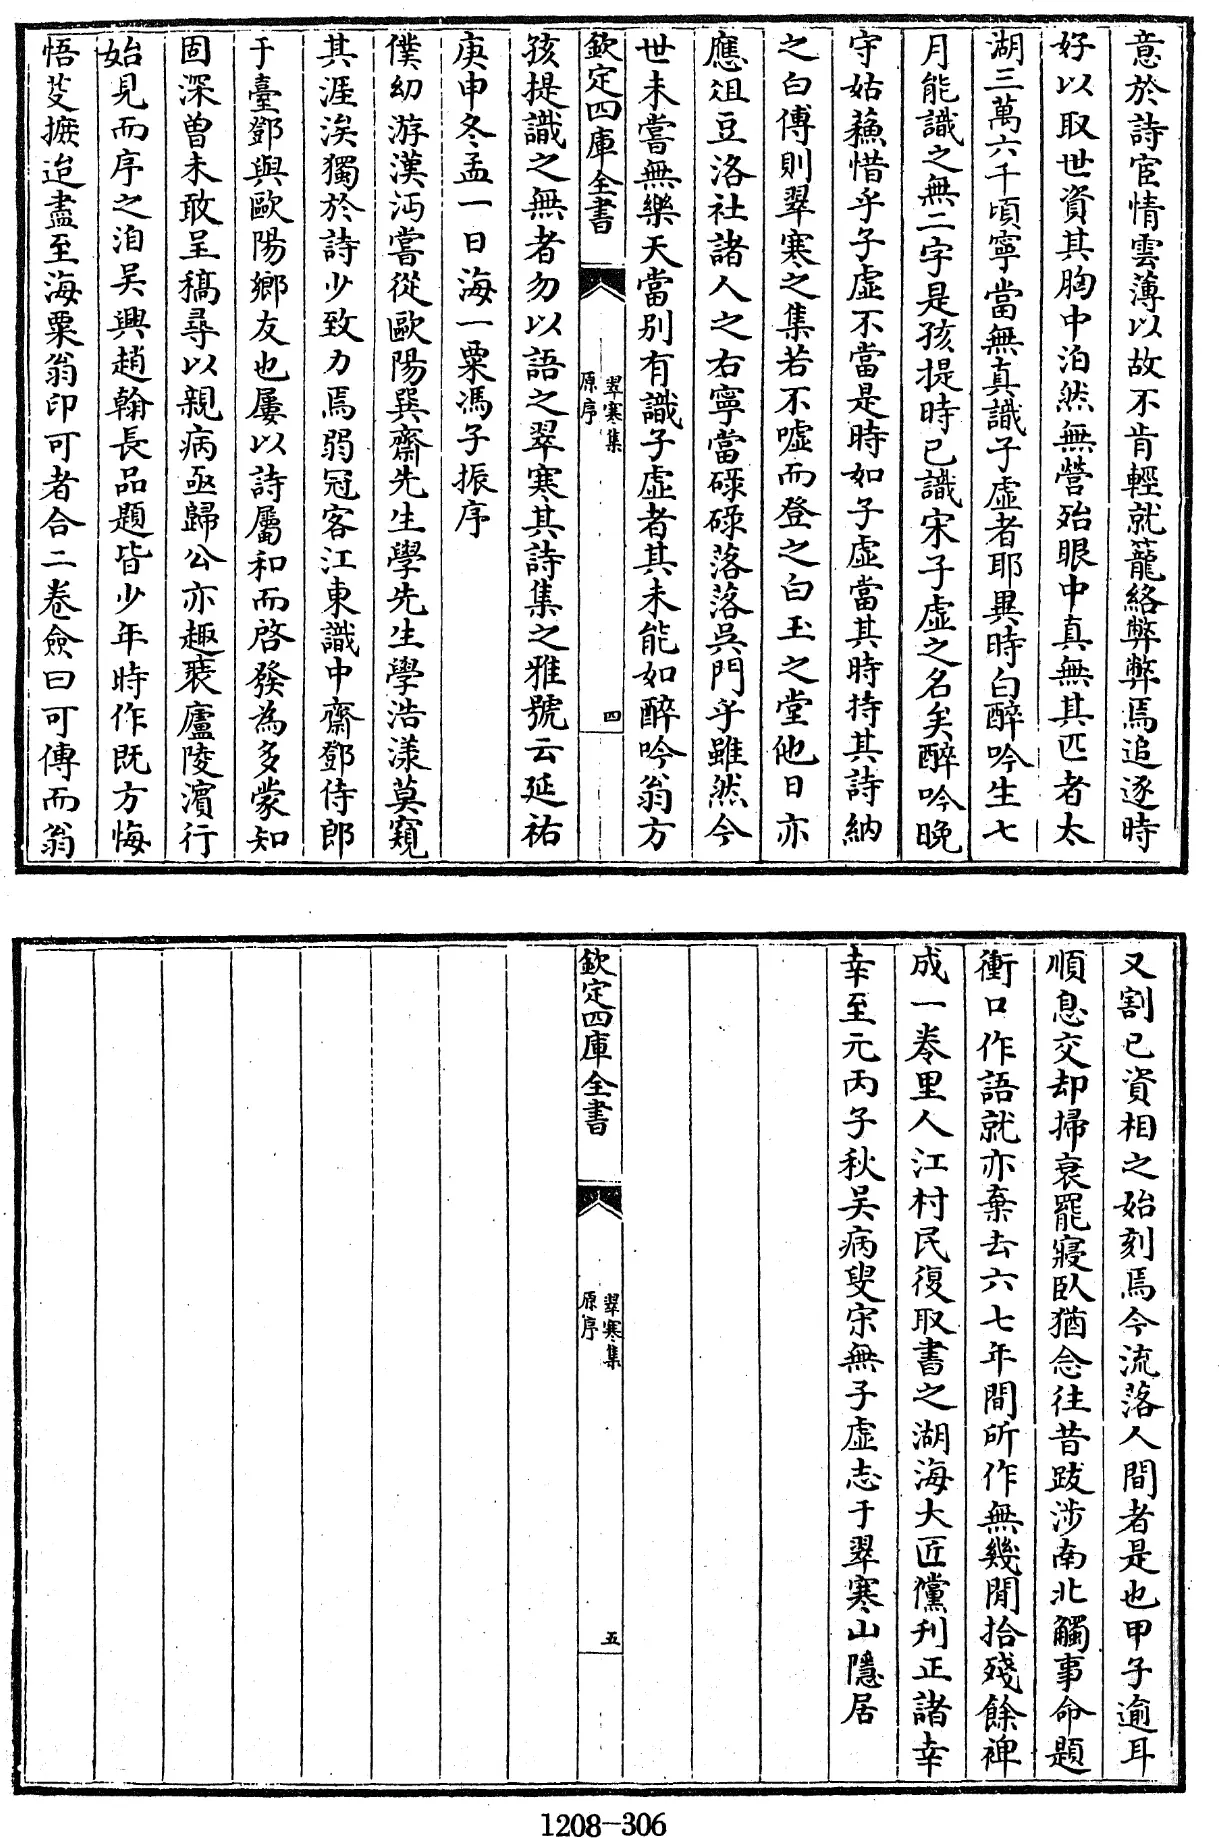 意於詩宦情雲薄以故不肯輕就籠絡弊弊焉追逐時
好以取世資其胸中泊然無營殆眼中真無其匹者太
湖三萬六千頃寧當無真識子虛者耶異時白醉吟生七
月能識之無二字是孩提時已識宋子虛之名矣醉吟晚
守姑蘓惜乎子虛不當是時如子虛當其時持其詩納
之白傅則翠寒之集若不噓而登之白玉之堂他日亦
應俎豆洛社諸人之右寧當碌碌落落吳門乎雖然今
世未嘗無樂天當别有識子虛者其未能如醉吟翁方
欽定四庫全書
翠寒集
原序
四
孩提識之無者勿以語之翠寒其詩集之雅號云延祐
庚申冬孟一日海一粟馮子振序
僕幼游漢沔嘗從歐陽巽齋先生學先生學浩漾莫窺
其涯涘獨於詩少致力焉弱冠客江東識中齋鄧侍郎
于臺鄧與歐陽鄉友也屢以詩屬和而啓發為多蒙知
固深曽未敢呈稿尋以親病亟歸公亦趣裝廬陵濱行
始見而序之洎吳興趙翰長品題皆少年時作既方悔
悟芟摭迨盡至海粟翁印可者合二卷僉曰可傳而翁
又割已資相之始刻焉今流落人間者是也甲子逾耳
順息交却掃衰罷寢臥猶念往昔跋涉南北觸事命題
衝口作語就亦棄去六七年間所作無幾閒拾殘餘裨
成一卷里人江村民復取書之湖海大匠儻刋正諸幸
幸至元丙子秋吴病叟宋無子虛志于翠寒山隱居
欽定四庫全書
翠寒集
原序
五
1208-306